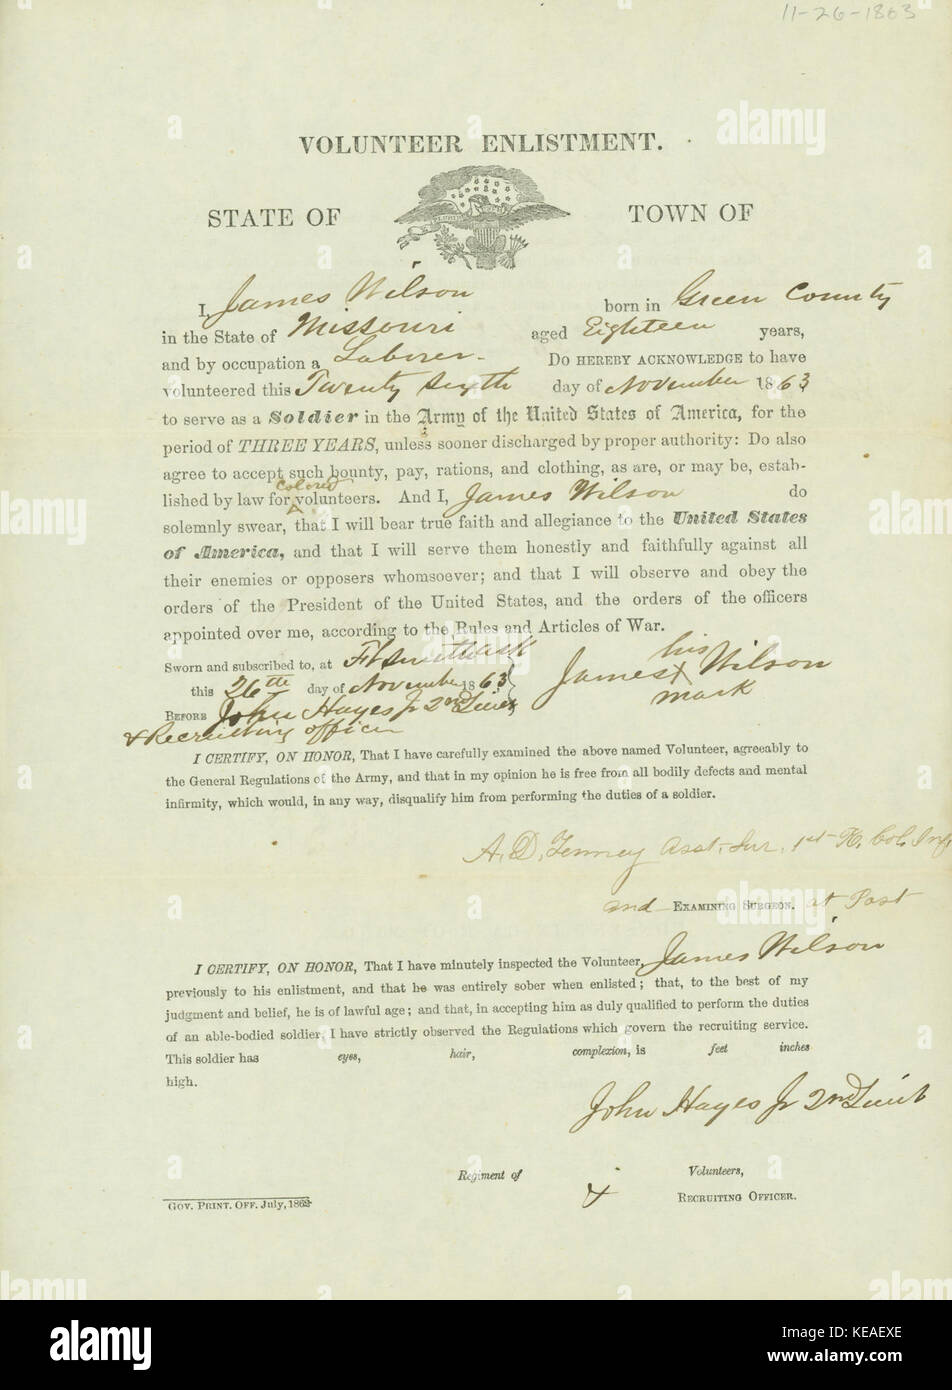 11-26-1863
VOLUNTEER ENLISTMENT.
STATE OF TOWN OF
I, James Wilson born in Green County
in the State of Missouri aged Eighteen years,
and by occupation a Laborer - Do HEREBY ACKNOWLEDGE to have
volunteered this Twenty Sixth day of November 1863
to serve as a Soldier in the Army of the United States of America, for the
period of THREE YEARS, unless sooner discharged by proper authority: Do also
agree to accept such bounty, pay, rations, and clothing, as are, or may be, estab-
lished by law for colored volunteers. And I, James Wilson do
solemnly swear, that I will bear true faith and allegiance to the United States
of America, and that I will serve them honestly and faithfully against all
their enemies or opposers whomsoever; and that I will observe and obey the
orders of the President of the United States, and the orders of the officers
appointed over me, according to the Rules and Articles of War.
Sworn and subscribed to, at Ft
this 26th day of November 1863
BEFORE John Hayes Jr 2nd Lieut
& Recruiting officer
his
James X Wilson
mark
I CERTIFY, ON HONOR, That I have carefully examined the above named Volunteer, agreeably to
the General Regulations of the Army, and that in my opinion he is free from all bodily defects and mental
infirmity, which would, in any way, disqualify him from performing the duties of a soldier.
A. D. Tenney Asst. Sur. 1st K. Col. Inf
and EXAMINING SURGEON. at Post
I CERTIFY, ON HONOR, That I have minutely inspected the Volunteer, James Wilson
previously to his enlistment, and that he was entirely sober when enlisted; that, to the best of my
judgment and belief, he is of lawful age; and that, in accepting him as duly qualified to perform the duties
of an able-bodied soldier, I have strictly observed the Regulations which govern the recruiting service.
This soldier has eyes, hair, complexion, is feet inches
high.
John Hayes Jr 2nd Lieut
Regiment of Volunteers,
& RECRUITING OFFICER.
GOV. PRINT. OFF. July, 1862
alamy
Image ID: KEAEXE
www.alamy.com